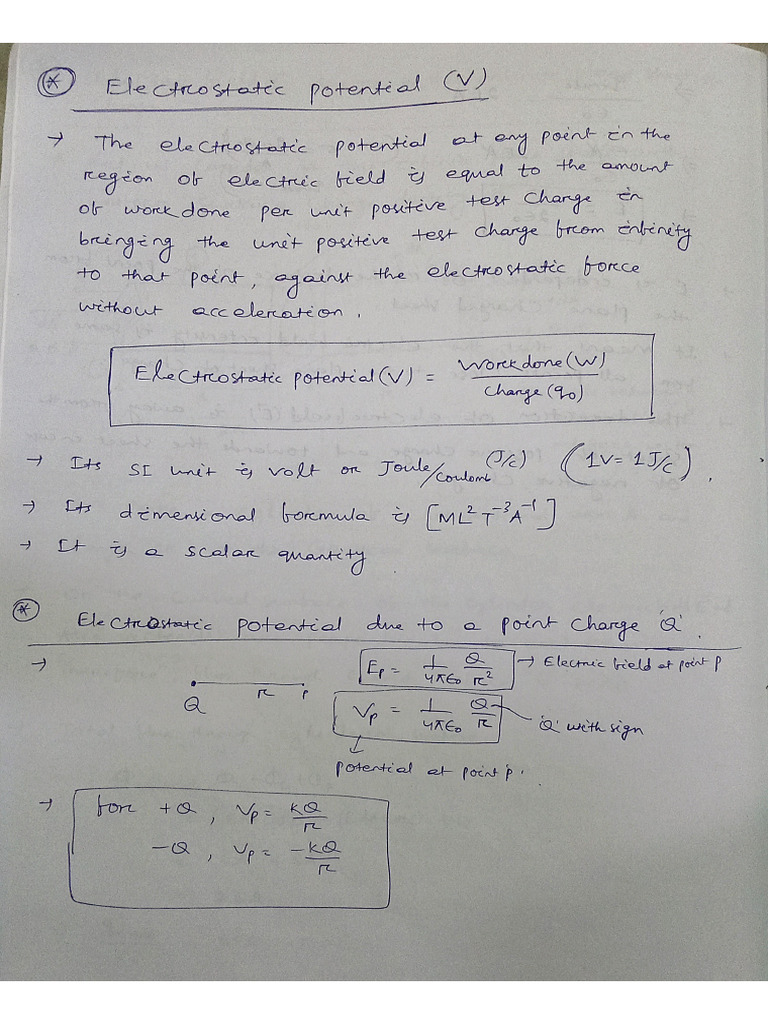 * Electrostatic potential (V)
→ The electrostatic potential at any point in the
region of electric field is equal to the amount
of work done per unit positive test charge in
bringing the unit positive test charge from infinity
to that point, against the electrostatic force
without acceleration.
Electrostatic potential (V) = Work done (W) / Charge (q₀)
→ Its SI unit is volt or Joule/Coulomb (J/C) (1V = 1J/C).
→ Its dimensional formula is [ML²T⁻³A⁻¹]
→ It is a scalar quantity.
* Electrostatic potential due to a point charge 'Q'.
→ Q r P
Eₚ = 1/4πε₀ Q/r² → Electric field at point P
Vₚ = 1/4πε₀ Q/r 'Q' with sign
potential at point 'p'.
→ for +Q, Vₚ = KQ/r
-Q, Vₚ = -KQ/r